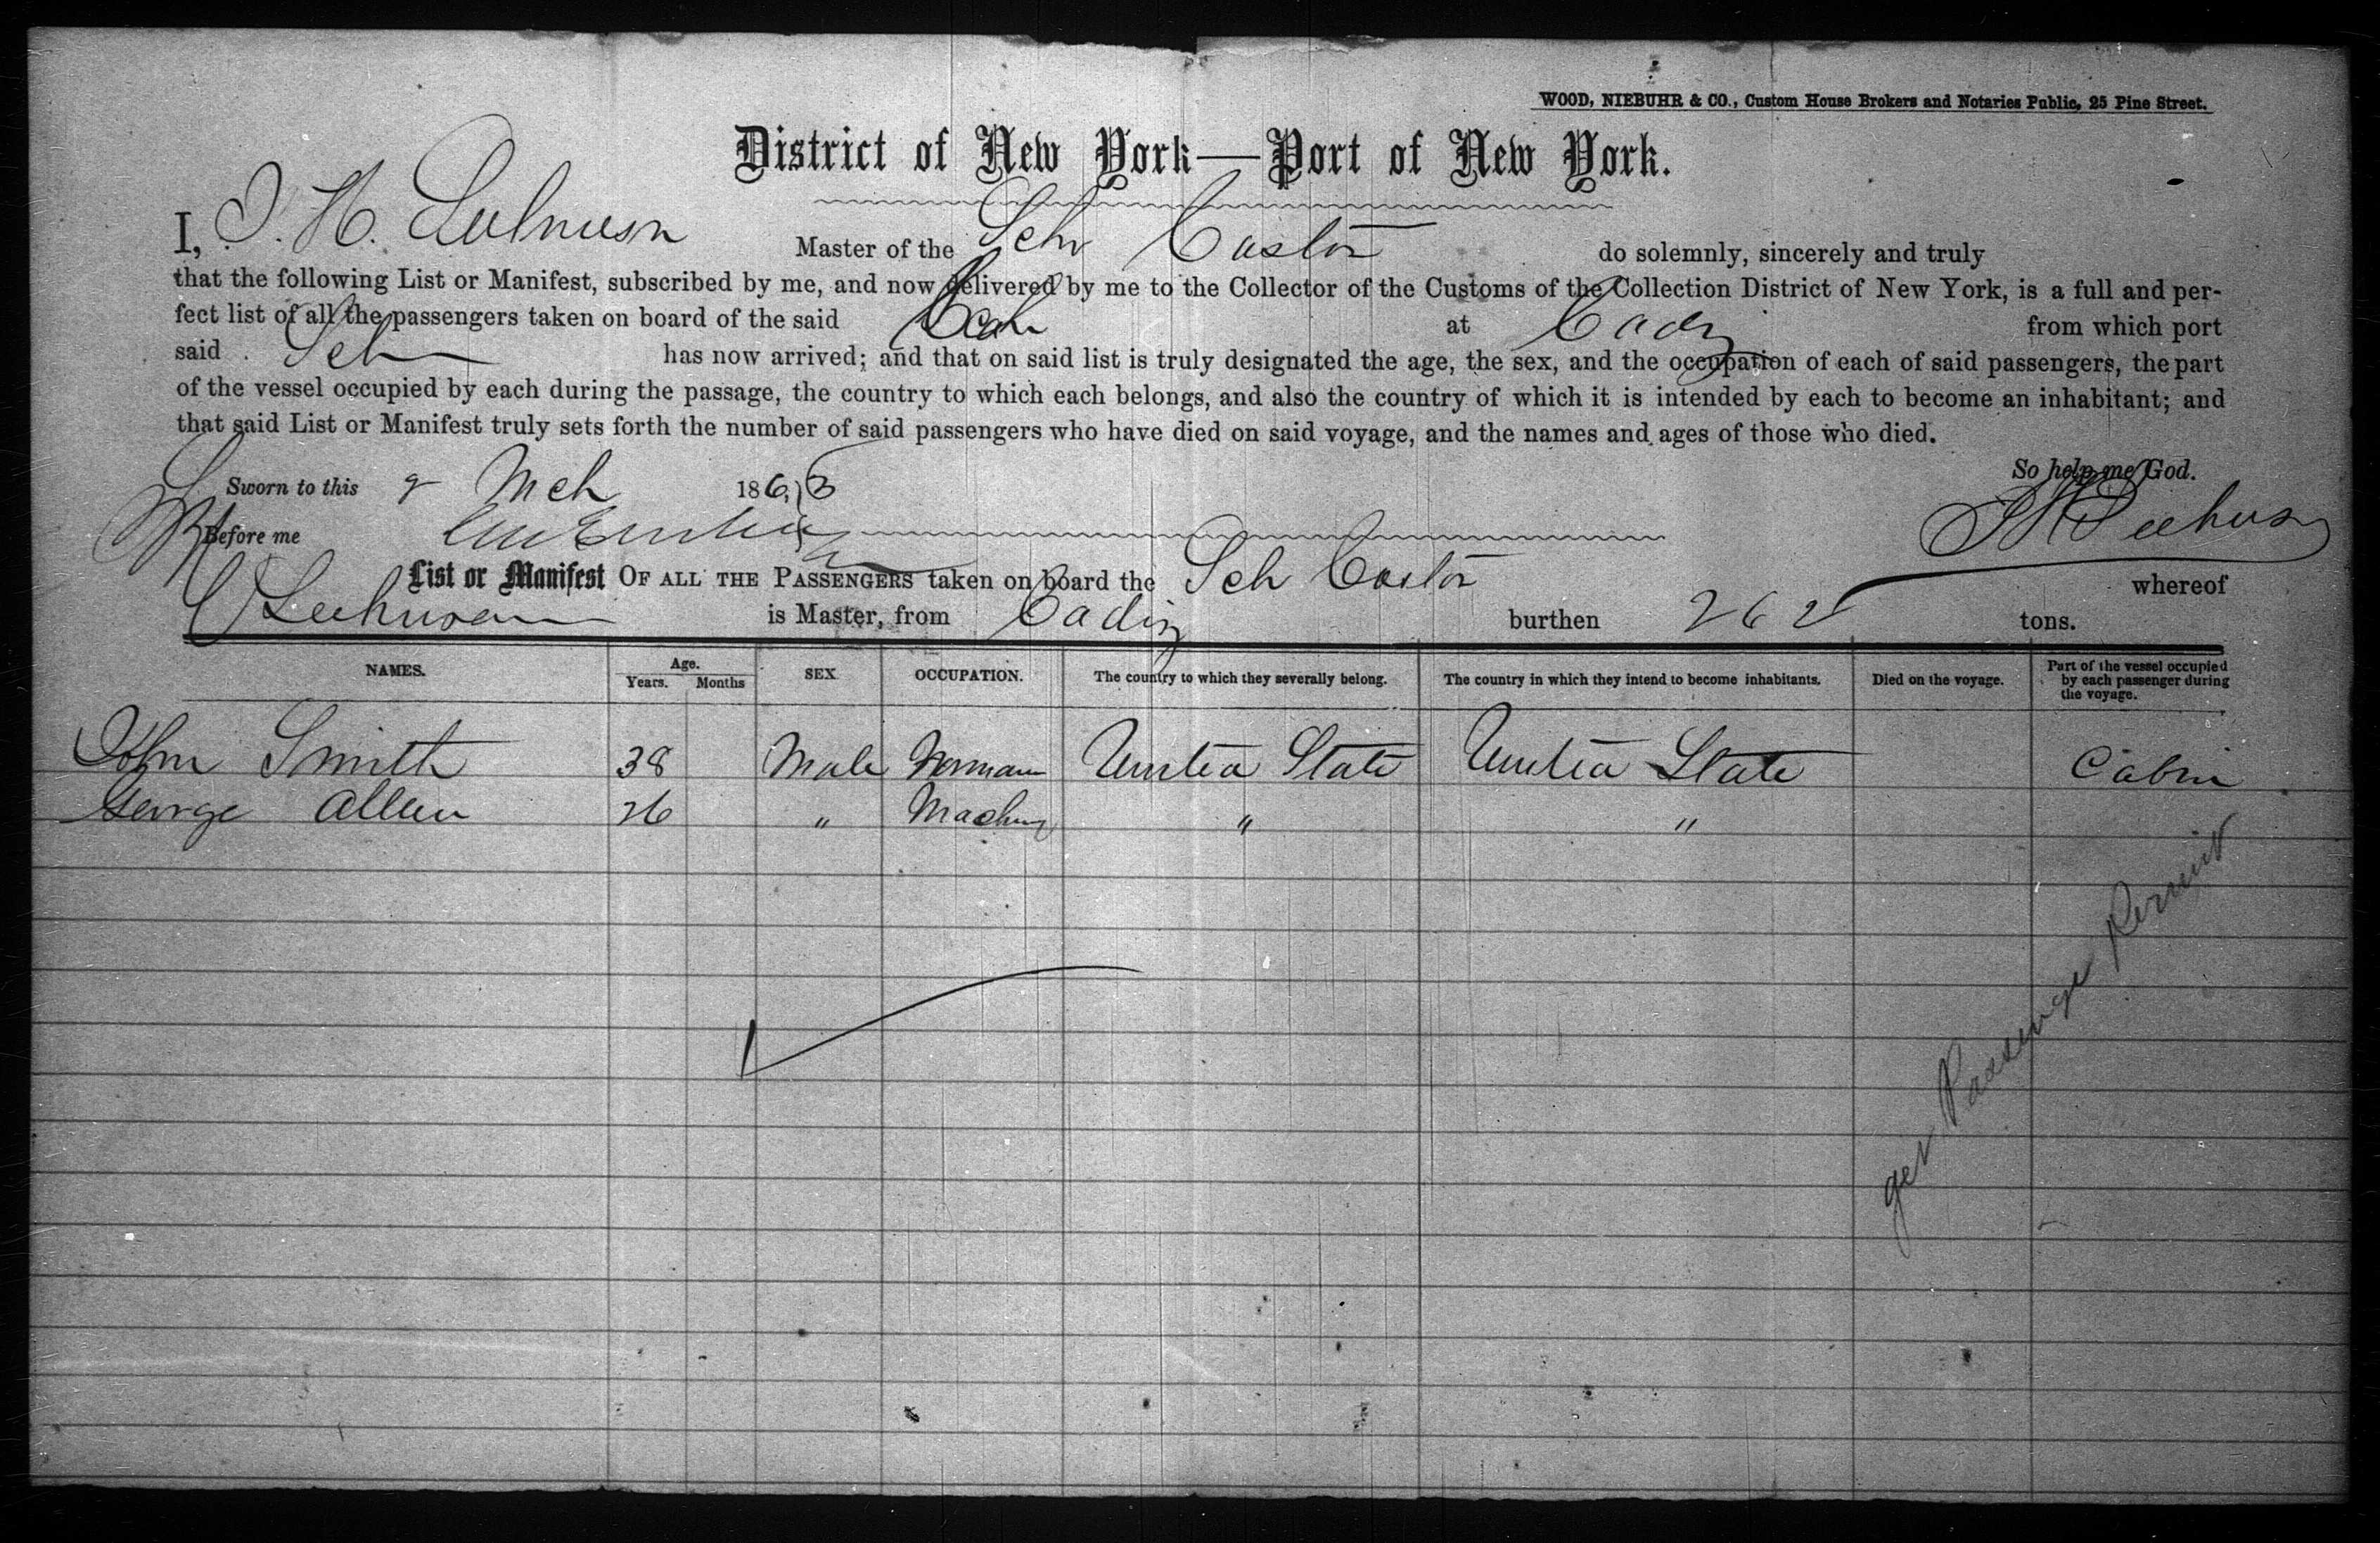 WOOD, NIEBUHR & CO., Custom House Brokers and Notaries Public, 25 Pine Street.
District of New York—Port of New York.
I, J. H. Master of the Schr Castor do solemnly, sincerely and truly
that the following List or Manifest, subscribed by me, and now delivered by me to the Collector of the Customs of the Collection District of New York, is a full and per-
fect list of all the passengers taken on board of the said at Cadiz from which port
said Sch has now arrived; and that on said list is truly designated the age, the sex, and the occupation of each of said passengers, the part
of the vessel occupied by each during the passage, the country to which each belongs, and also the country of which it is intended by each to become an inhabitant; and
that said List or Manifest truly sets forth the number of said passengers who have died on said voyage, and the names and ages of those who died.
So help me God.
Sworn to this Mch 186
Before me
List or Manifest OF ALL THE PASSENGERS taken on board the Sch Castor whereof
is Master, from Cadiz burthen 262 tons.
NAMES. Age. Years. Months SEX OCCUPATION. The country to which they severally belong. The country in which they intend to become inhabitants. Died on the voyage. Part of the vessel occupied by each passenger during the voyage.
John Smith 38 Male United State United State Cabin
George Allen 26 " " "
get Passenge Permit